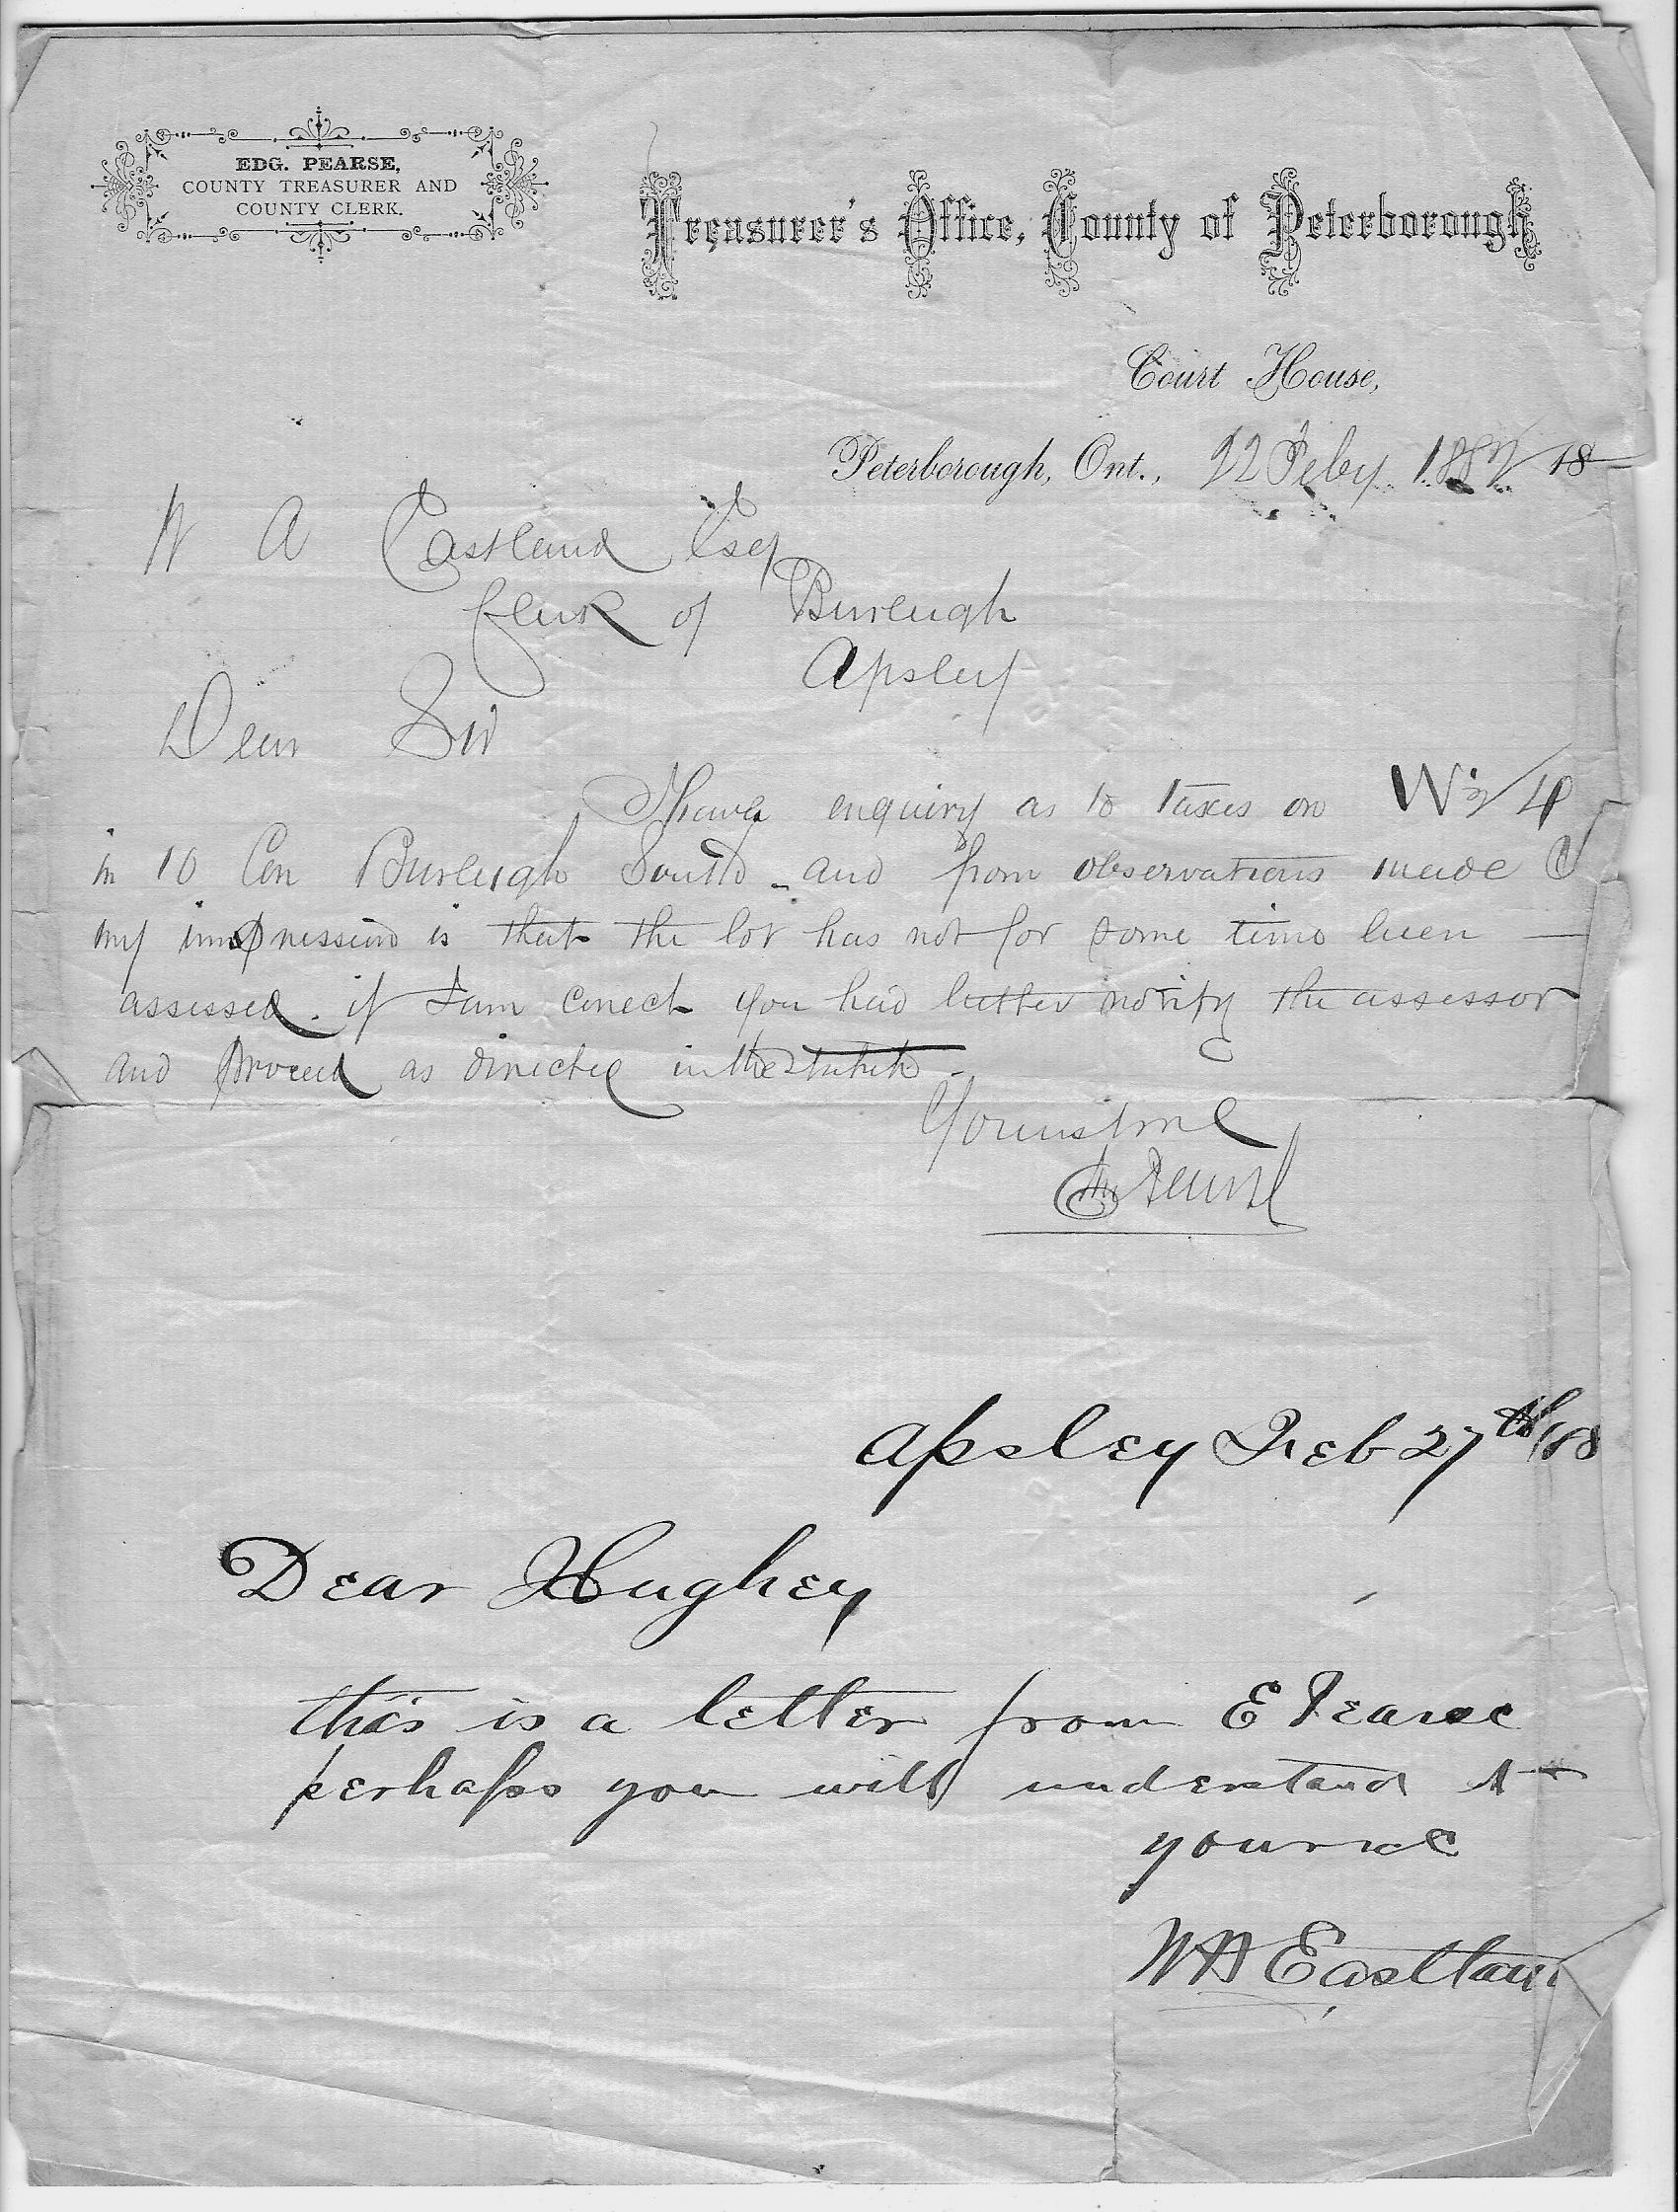 EDG. PEARSE,
COUNTY TREASURER AND
COUNTY CLERK.
Treasurer's Office, County of Peterborough
Court House,
Peterborough, Ont., 22 Feby 18
W A Eastland Esq
Clerk of Burleigh
Apsley
Dear Sir
I have enquiry as to taxes on W 1/2 4
in 10 Con Burleigh South and from observations made
my impression is that the lot has not for some time been
assessed. if I am correct you had better notify the assessor
and proceed as directed in the statute.
Yours truly
E Pearse
Apsley Feb 27th /88
Dear Hughey
this is a letter from E Pearse
perhaps you will understand it
yours &c
WA Eastland